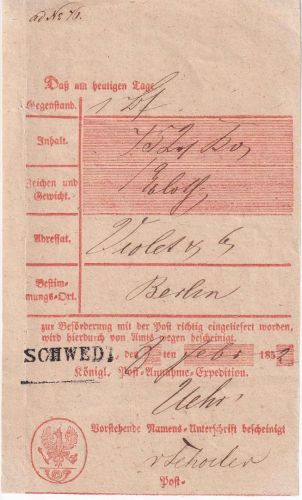 ad No 71.
Daß am heutigen Tage
Gegenstand. 1 Bf
Inhalt.
Zeichen und
Gewicht.
Adressat. Violet & C
Bestim-
mungs-Ort. Berlin
zur Beförderung mit der Post richtig eingeliefert worden,
wird hierdurch von Amts wegen bescheinigt.
SCHWEDT, den ten Febr 185
Königl. Post-Annahme-Expedition.
Vorstehende Namens-Unterschrift bescheinigt
Post-